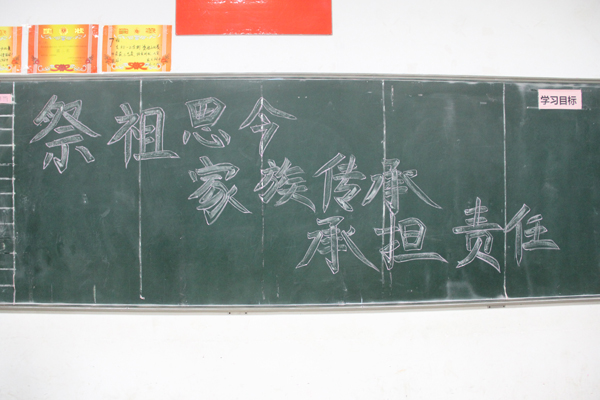 学习目标
祭祖思今
家族传承
承担责任